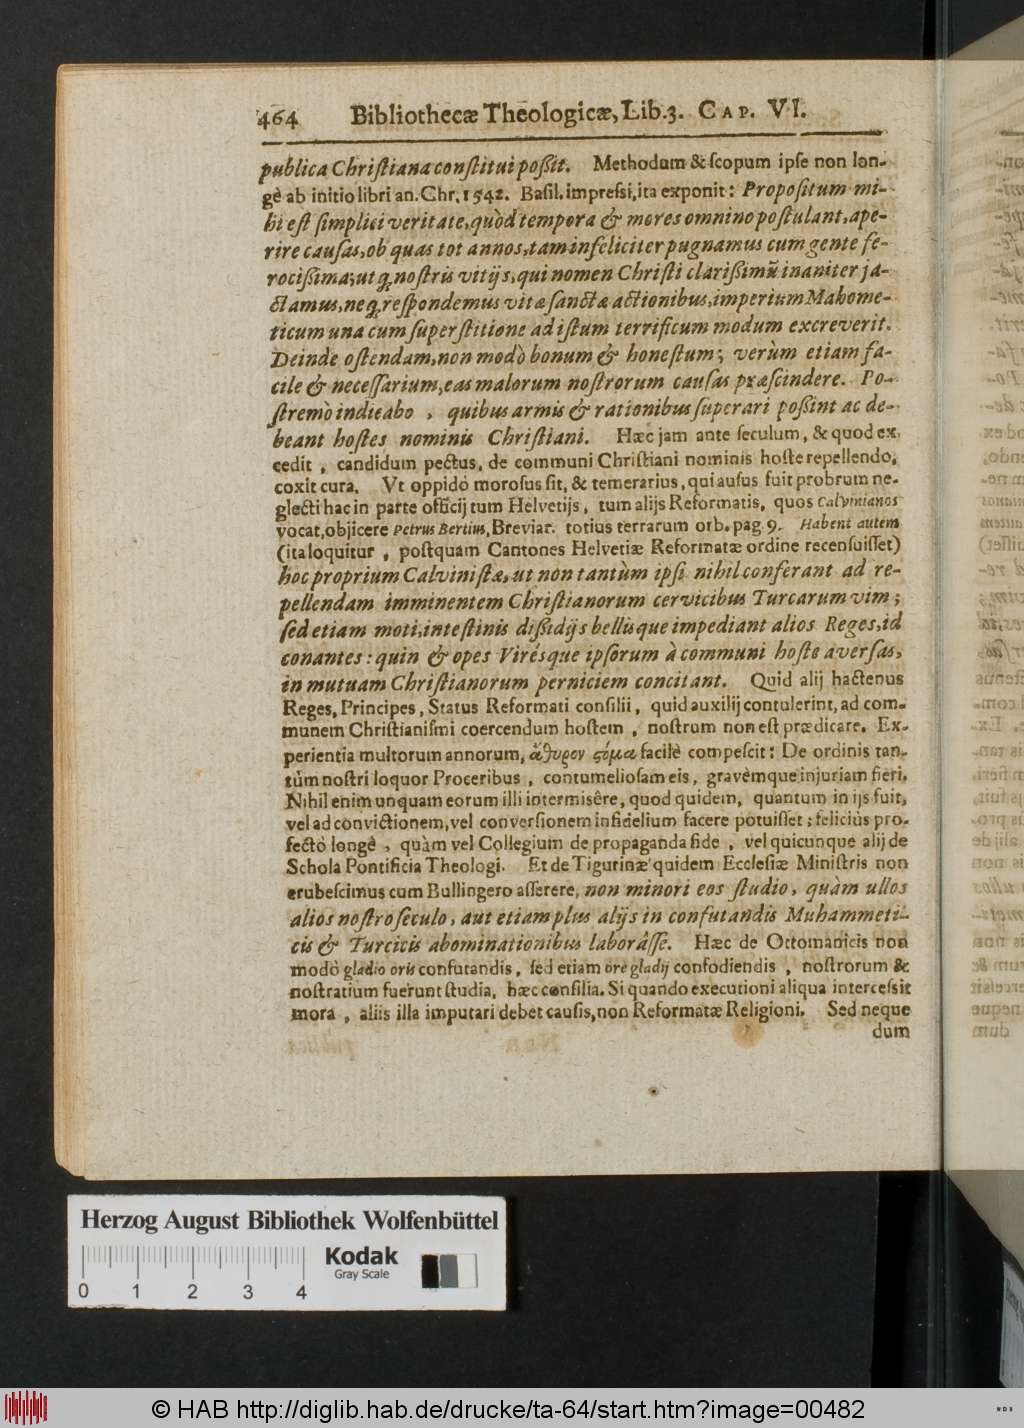 464 Bibliothecæ Theologicæ, Lib. 3. CAP. VI.
publica Chriſtiana conſtitui poßit. Methodum & ſcopum ipſe non lon-
gè ab initio libri an. Chr. 1542. Baſil. impreſsi, ita exponit: Propoſitum mi-
hi eſt ſimplici veritate, quòd tempora & mores omnino poſtulant, ape-
rire cauſas, ob quas tot annos, tam infeliciter pugnamus cum gente fe-
rocißima; utq; noſtris vitijs, qui nomen Chriſti clarißimũ inaniter ja-
ctamus, neq; reſpondemus vitæ ſanctæ actionibus, imperium Mahome-
ticum una cum ſuperſtitione ad iſtum terrificum modum excreverit.
Deinde oſtendam, non modò bonum & honeſtum; verùm etiam fa-
cile & neceſſarium, eas malorum noſtrorum cauſas præſcindere. Po-
ſtremò indicabo, quibus armis & rationibus ſuperari poßint ac de-
beant hoſtes nominis Chriſtiani. Hæc jam ante ſeculum, & quod ex-
cedit, candidum pectus, de communi Chriſtiani nominis hoſte repellendo,
coxit cura. Vt oppidò moroſus ſit, & temerarius, qui auſus fuit probrum ne-
glecti hac in parte officij tum Helvetijs, tum alijs Reformatis, quos Calvinianos
vocat, objicere Petrus Bertius, Breviar. totius terrarum orb. pag. 9. Habent autem
(ita loquitur, poſtquam Cantones Helvetiæ Reformatæ ordine recenſuiſſet)
hoc proprium Calviniſtæ, ut non tantùm ipſi nihil conferant ad re-
pellendam imminentem Chriſtianorum cervicibus Turcarum vim;
ſed etiam moti, inteſtinis dißidijs bellisque impediant alios Reges, id
conantes: quin & opes Virésque ipſorum à communi hoſte averſas,
in mutuam Chriſtianorum perniciem concitant. Quid alij hactenus
Reges, Principes, Status Reformati conſilii, quid auxilij contulerint, ad com-
munem Chriſtianiſmi coercendum hoſtem, noſtrum non eſt prædicare. Ex-
perientia multorum annorum, ἄθυρον ϛόμα facilè compeſcit: De ordinis tan-
tùm noſtri loquor Proceribus, contumelioſam eis, gravèmque injuriam fieri.
Nihil enim unquam eorum illi intermisêre, quod quidem, quantum in ijs fuit,
vel ad convictionem, vel converſionem infidelium facere potuiſſet; feliciùs pro-
fectò longè, quàm vel Collegium de propaganda fide, vel quicunque alij de
Schola Pontificia Theologi. Et de Tigurinæ quidem Eccleſiæ Miniſtris non
erubeſcimus cum Bullingero aſſerere, non minori eos ſtudio, quàm ullos
alios noſtro ſeculo, aut etiam plus alijs in confutandis Muhammeti-
cis & Turcicis abominationibus laborâſſe. Hæc de Ottomanicis non
modò gladio oris confutandis, ſed etiam ore gladij confodiendis, noſtrorum &
noſtratium fuerunt ſtudia, hæc conſilia. Si quando executioni aliqua interceſsit
mora, aliis illa imputari debet cauſis, non Reformatæ Religioni. Sed neque
dum
Herzog August Bibliothek Wolfenbüttel
Kodak
Gray Scale
0 1 2 3 4
© HAB http://diglib.hab.de/drucke/ta-64/start.htm?image=00482